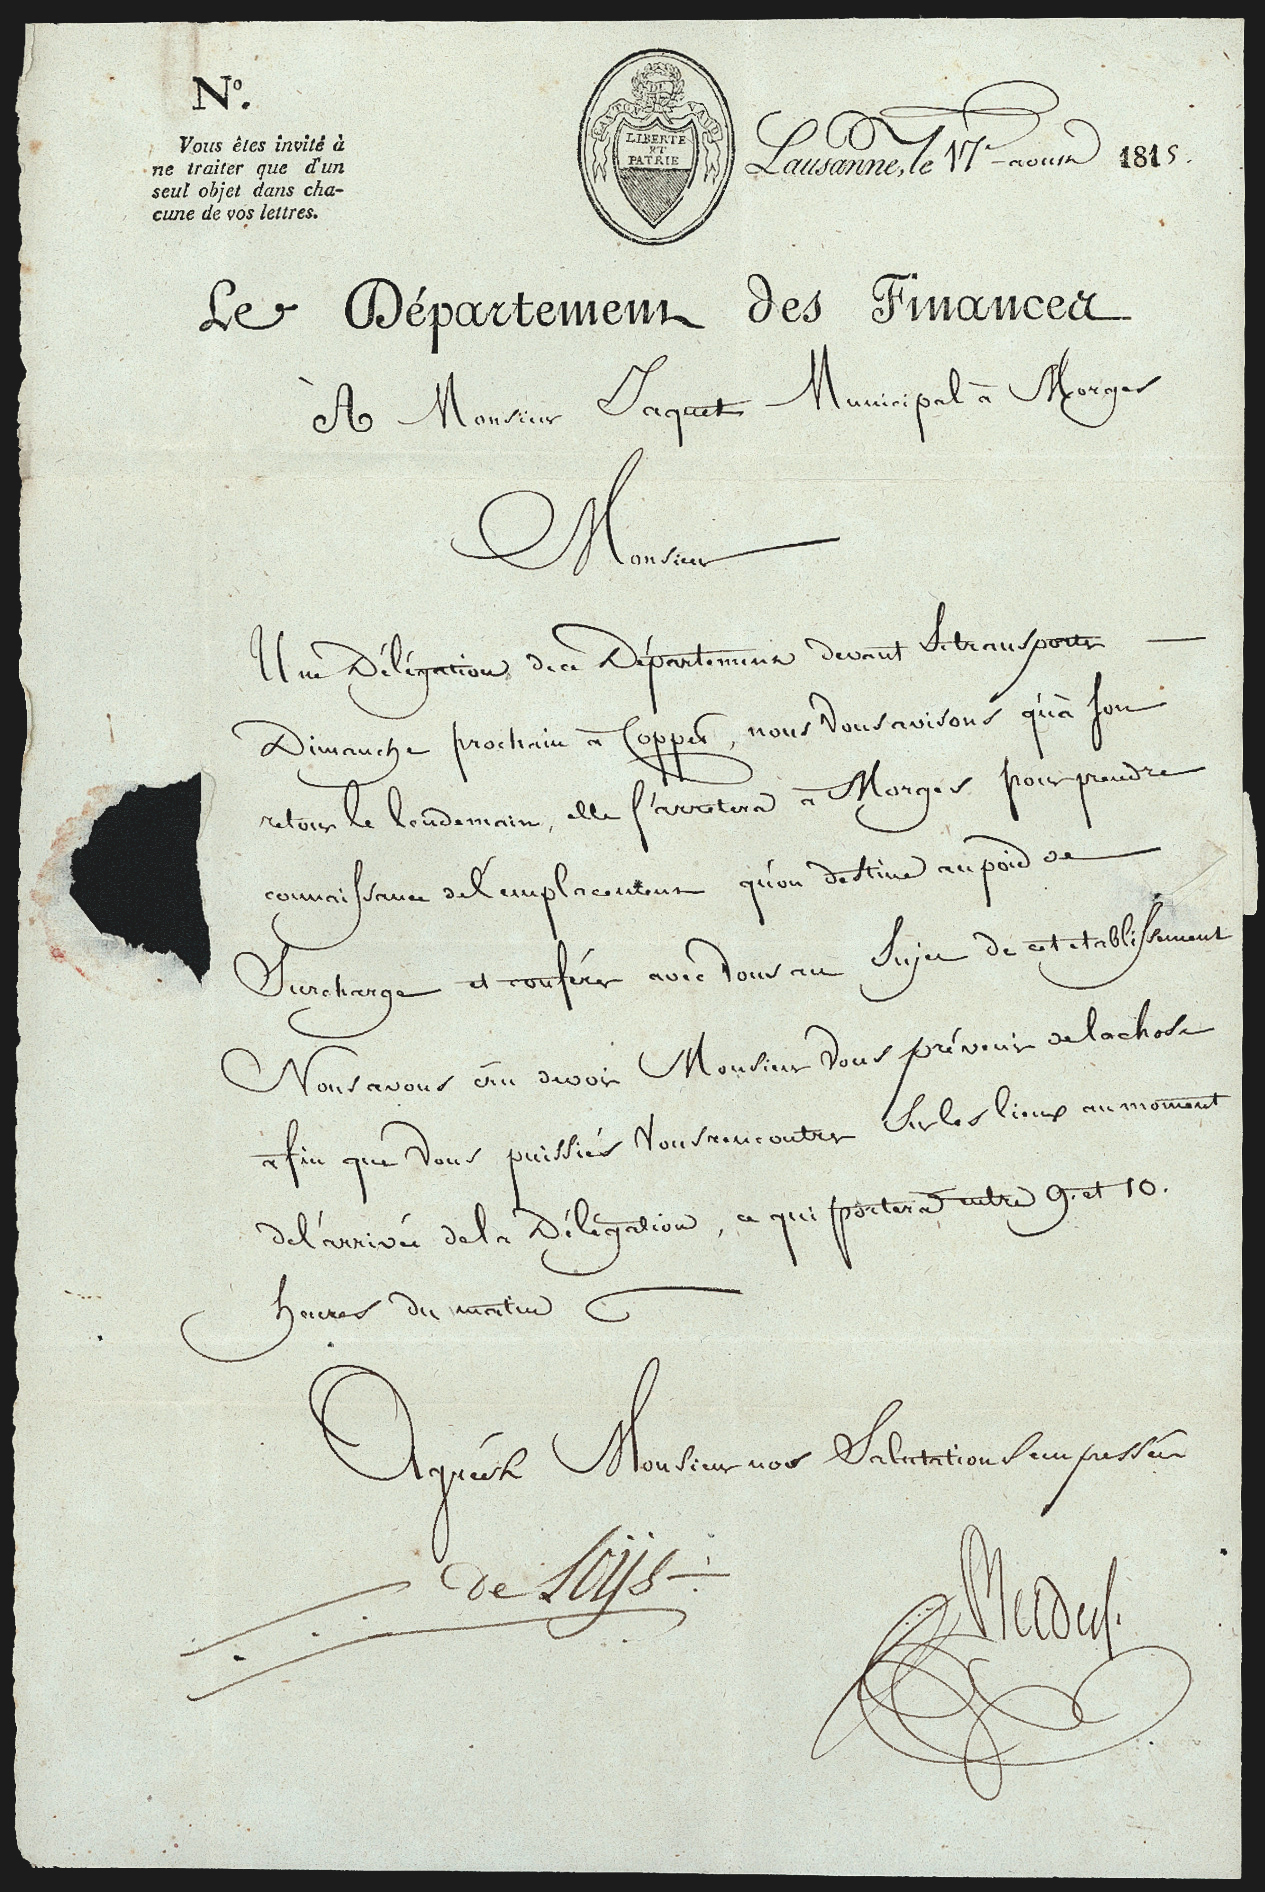 N.º
Vous êtes invité à
ne traiter que d'un
seul objet dans cha-
cune de vos lettres.
CANTON DE VAUD
LIBERTÉ
ET
PATRIE
Lausanne, le 17e aoust 1815.
Le Département des Finances
À A Monsieur Jaquet Municipal à Morges
Monsieur
Une Délégation de ce Département devant se transporter
Dimanche prochain à Coppet, nous vous avisons qu'à son
retour le lendemain, elle s'arretera à Morges pour prendre
connaissance de l'emplacement qu'on destine au poid de
Surcharge et conférer avec vous au sujet de cet etablissement
Nous avons cru devoir Monsieur vous prévenir de la chose
afin que vous puissiés vous rencontrer sur les lieux au moment
de l'arrivée de la Délégation, ce qui portera entre 9. et 10.
heures du matin
Agréés Monsieur nos Salutations empressées
de Loÿs